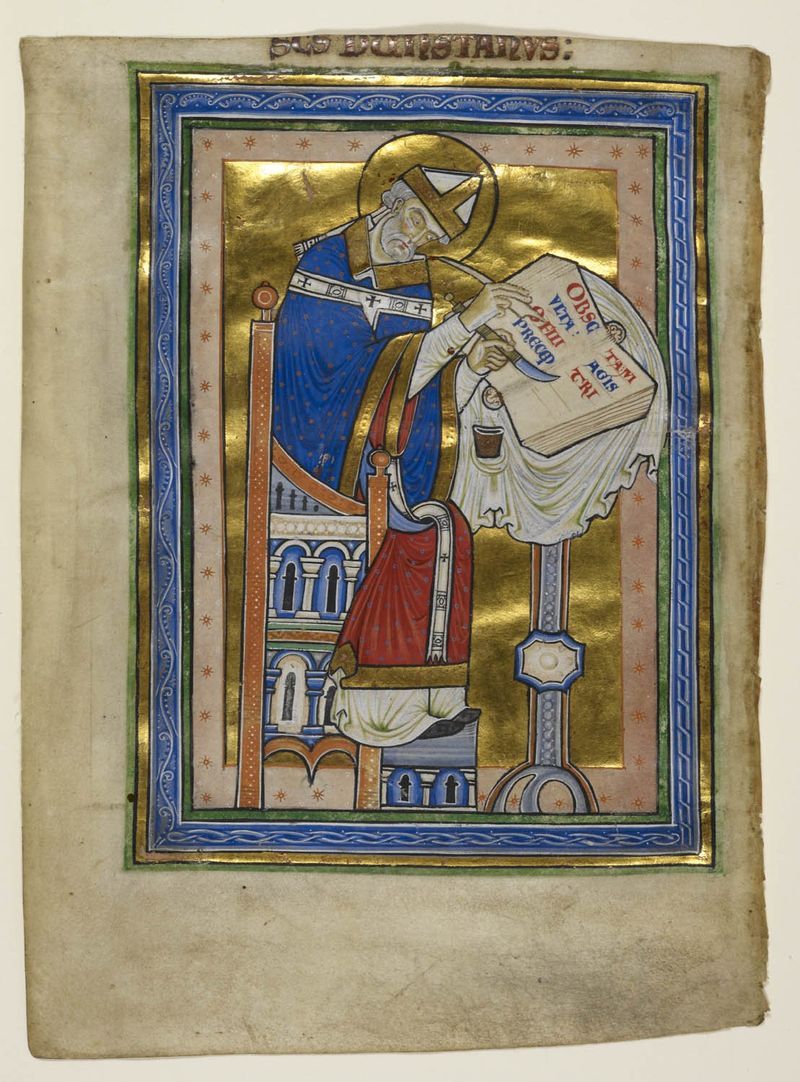 SCS DUNSTANVS:
OBSC
VLTA:
O FILI
PRECEP
TAM
AGIS
TRI